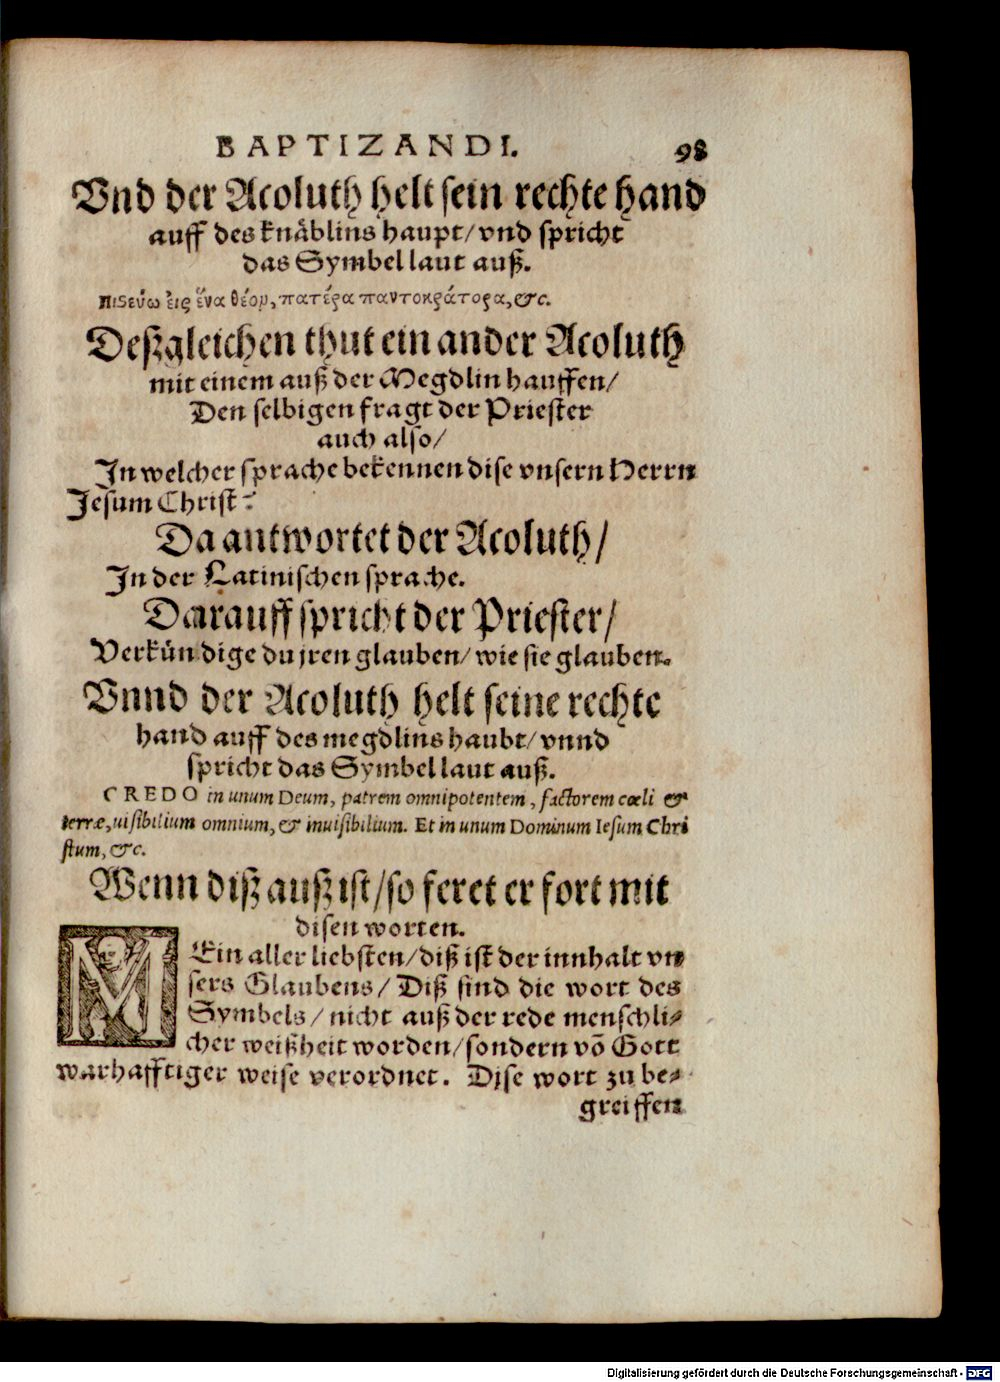 BAPTIZANDI. 98
Vnd der Acoluth helt sein rechte hand
auff des knäblins haupt/ vnd spricht
das Symbel laut auß.
πιϛεύω εἰς ἕνα θέον, πατέρα παντοκράτορα, &c.
Deßgleichen thut ein ander Acoluth
mit einem auß der Megdlin hauffen/
Den selbigen fragt der Priester
auch also/
In welcher sprache bekennen dise vnsern Herrn
Jesum Christ?
Da antwortet der Acoluth/
In der Latinischen sprache.
Darauff spricht der Priester/
Verkündige du jren glauben/ wie sie glauben.
Vnnd der Acoluth helt seine rechte
hand auff des megdlins haubt/ vnnd
spricht das Symbel laut auß.
CREDO in unum Deum, patrem omnipotentem, factorem cœli &
terræ, uisibilium omnium, & inuisibilium. Et in unum Dominum Iesum Chri
stum, &c.
Wenn diß auß ist/ so feret er fort mit
disen worten.
MEin aller liebsten/ diß ist der innhalt vn
sers Glaubens/ Diß sind die wort des
Symbels/ nicht auß der rede menschli⸗
cher weißheit worden/ sondern võ Gott
warhafftiger weise verordnet. Dise wort zu be⸗
greiffen
Digitalisierung gefördert durch die Deutsche Forschungsgemeinschaft - DFG